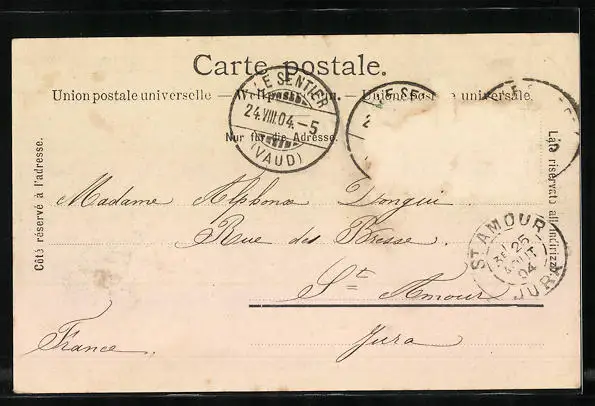 Carte postale.
Union postale universelle — Weltpostverein. — Unione postale universale.
Nur für die Adresse.
Côté réservé à l'adresse.
Lato riservato all'indirizzo.
LE SENTIER
24.VIII.04.-5
(VAUD)
LE SE
2
LE SE
Madame Alphonse Dongui
Rue des Bresse
St Amour
Jura
France
ST AMOUR
25
AOUT
04
JURA